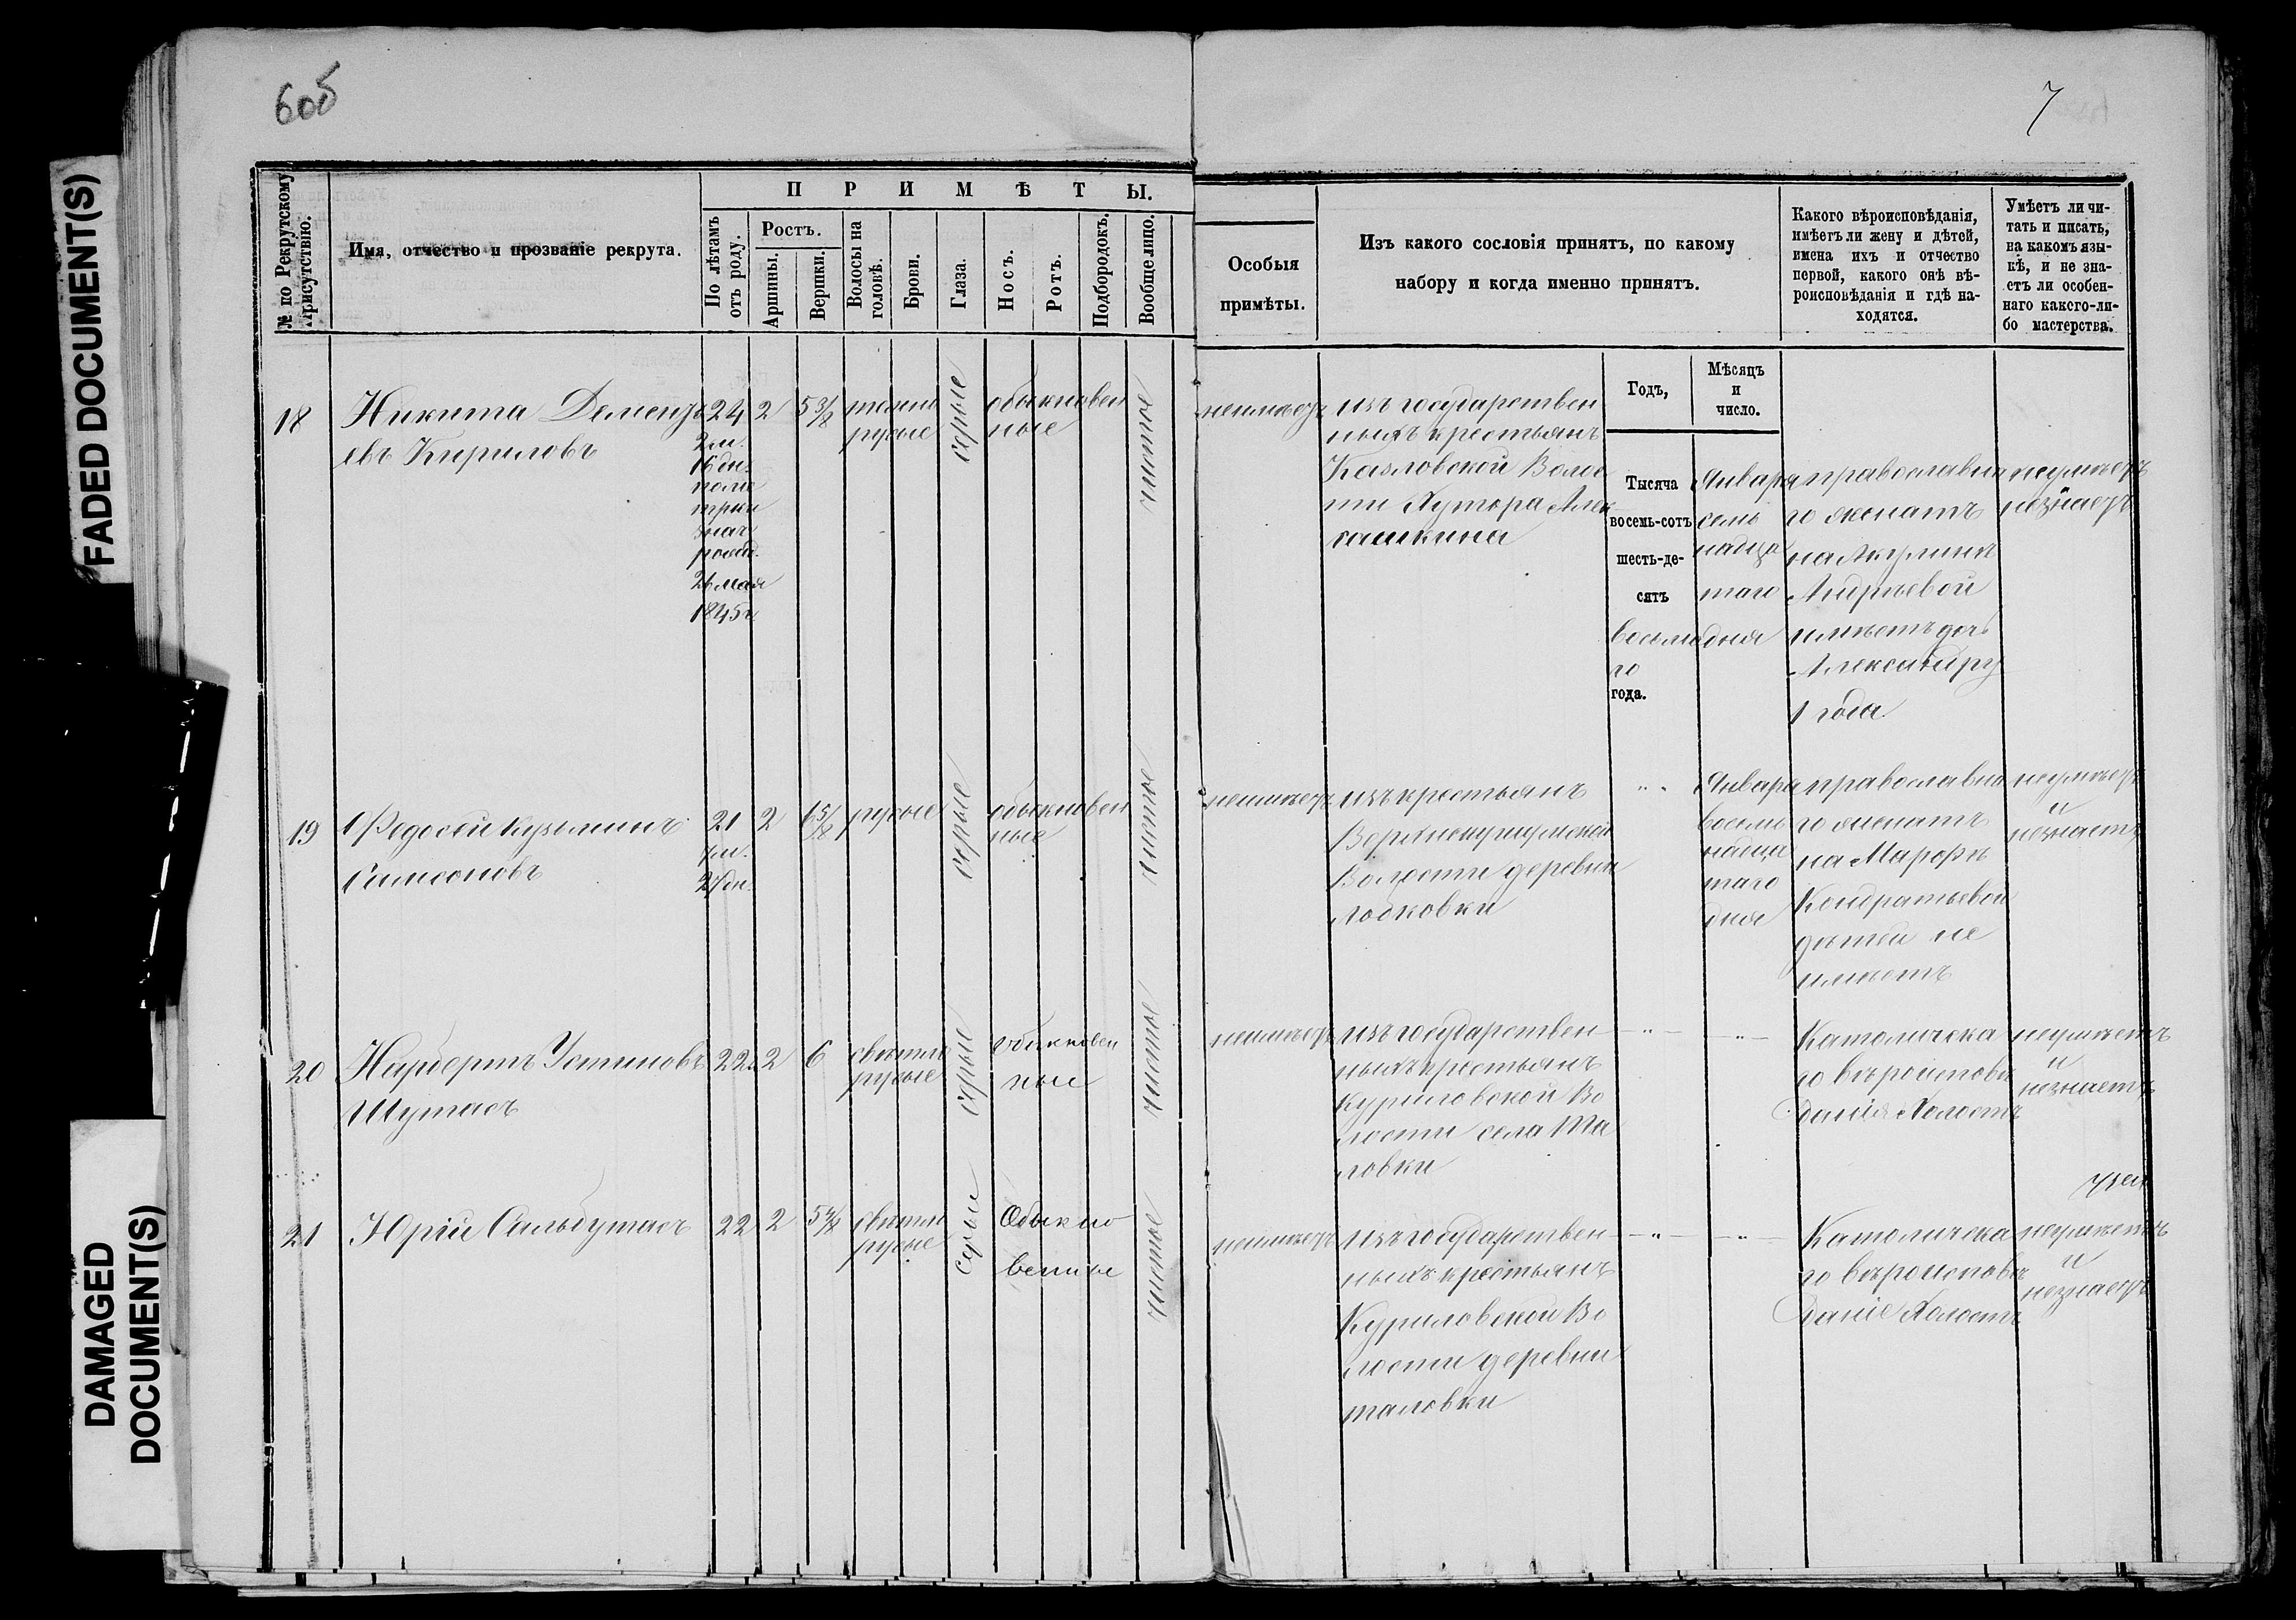 FADED DOCUMENT(S)
DAMAGED
DOCUMENT(S)
6об
7
№ по Рекрутскому
присутствію.
Имя, отчество и прозваніе рекрута.
ПРИМѢТЫ.
По лѣтамъ
отъ роду.
Ростъ.
Аршины.
Вершки.
Волосы на
головѣ.
Брови.
Глаза.
Носъ.
Ротъ.
Подбородокъ.
Вообще лицо.
Особыя
примѣты.
Изъ какого сословія принятъ, по какому
набору и когда именно принятъ.
Какого вѣроисповѣданія,
имѣетъ ли жену и дѣтей,
имена ихъ и отчество
первой, какого онѣ вѣ-
роисповѣданія и гдѣ на-
ходятся.
Умѣетъ ли чи-
тать и писать,
на какомъ язы-
кѣ, и не зна-
етъ ли особен-
наго какого-ли-
бо мастерства.
Годъ,
Мѣсяцъ
и
число.
18
Никита Дементь
евъ Кириловъ
24
2 м.
16 дн.
рожд.
26 мая
1845 г
2
5 3/8
темно
русые
серые
обыкновен
ные
чистое
неимѣетъ
изъ государствен
ныхъ крестьянъ
Казловской Волос
ти Хутора Алек
сашкина
Тысяча
восемь-сотъ
шесть-де-
сятъ
восьма
го
года.
Января
семь
надца
таго
дня
православна
го женатъ
на Акулинѣ
Андреевой
имѣетъ доч.
Александру
1 года
неумѣетъ
незнаетъ
19
Федосей Кузьминъ
Самсоновъ
21
7 м.
27 дн.
2
6 5/8
русые
серые
обыкновен
ные
чистое
неимѣетъ
изъ крестьянъ
Верхнекушумской
Волости деревни
Лобковки
" "
Января
восемь
надца
таго
дня
православна
го женатъ
на Марфѣ
Кондратьевой
дѣтей не
имѣетъ
неумѣетъ
и
незнаетъ
20
Нарбертъ Устиновъ
Шутасъ
22
2
6
свѣтло
русые
серые
обыкновен
ные
чистое
неимѣетъ
изъ государствен
ныхъ крестьянъ
Куриловской Во
лости села Та
ловки
— " —
— " —
Католическа
го вѣроисповѣ
данія Холостъ
неумѣетъ
и
незнаетъ
21
Юрій Сальбутасъ
22
2
5 4/8
свѣтло
русые
серые
Обыкно
венные
чистое
неимѣетъ
изъ государствен
ныхъ крестьянъ
Куриловской Во
лости деревни
таловки
— " —
— " —
Католическа
го вѣроисповѣ
даніе Холостъ
неумѣетъ
и
незнаетъ